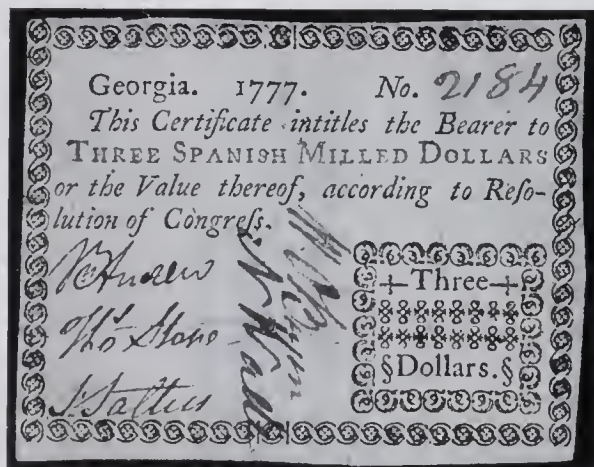 Georgia. 1777. No. 2184
This Certificate intitles the Bearer to
THREE SPANISH MILLED DOLLARS
or the Value thereof, according to Reſo-
lution of Congreſs.
Three
§Dollars.§
Thos Stone